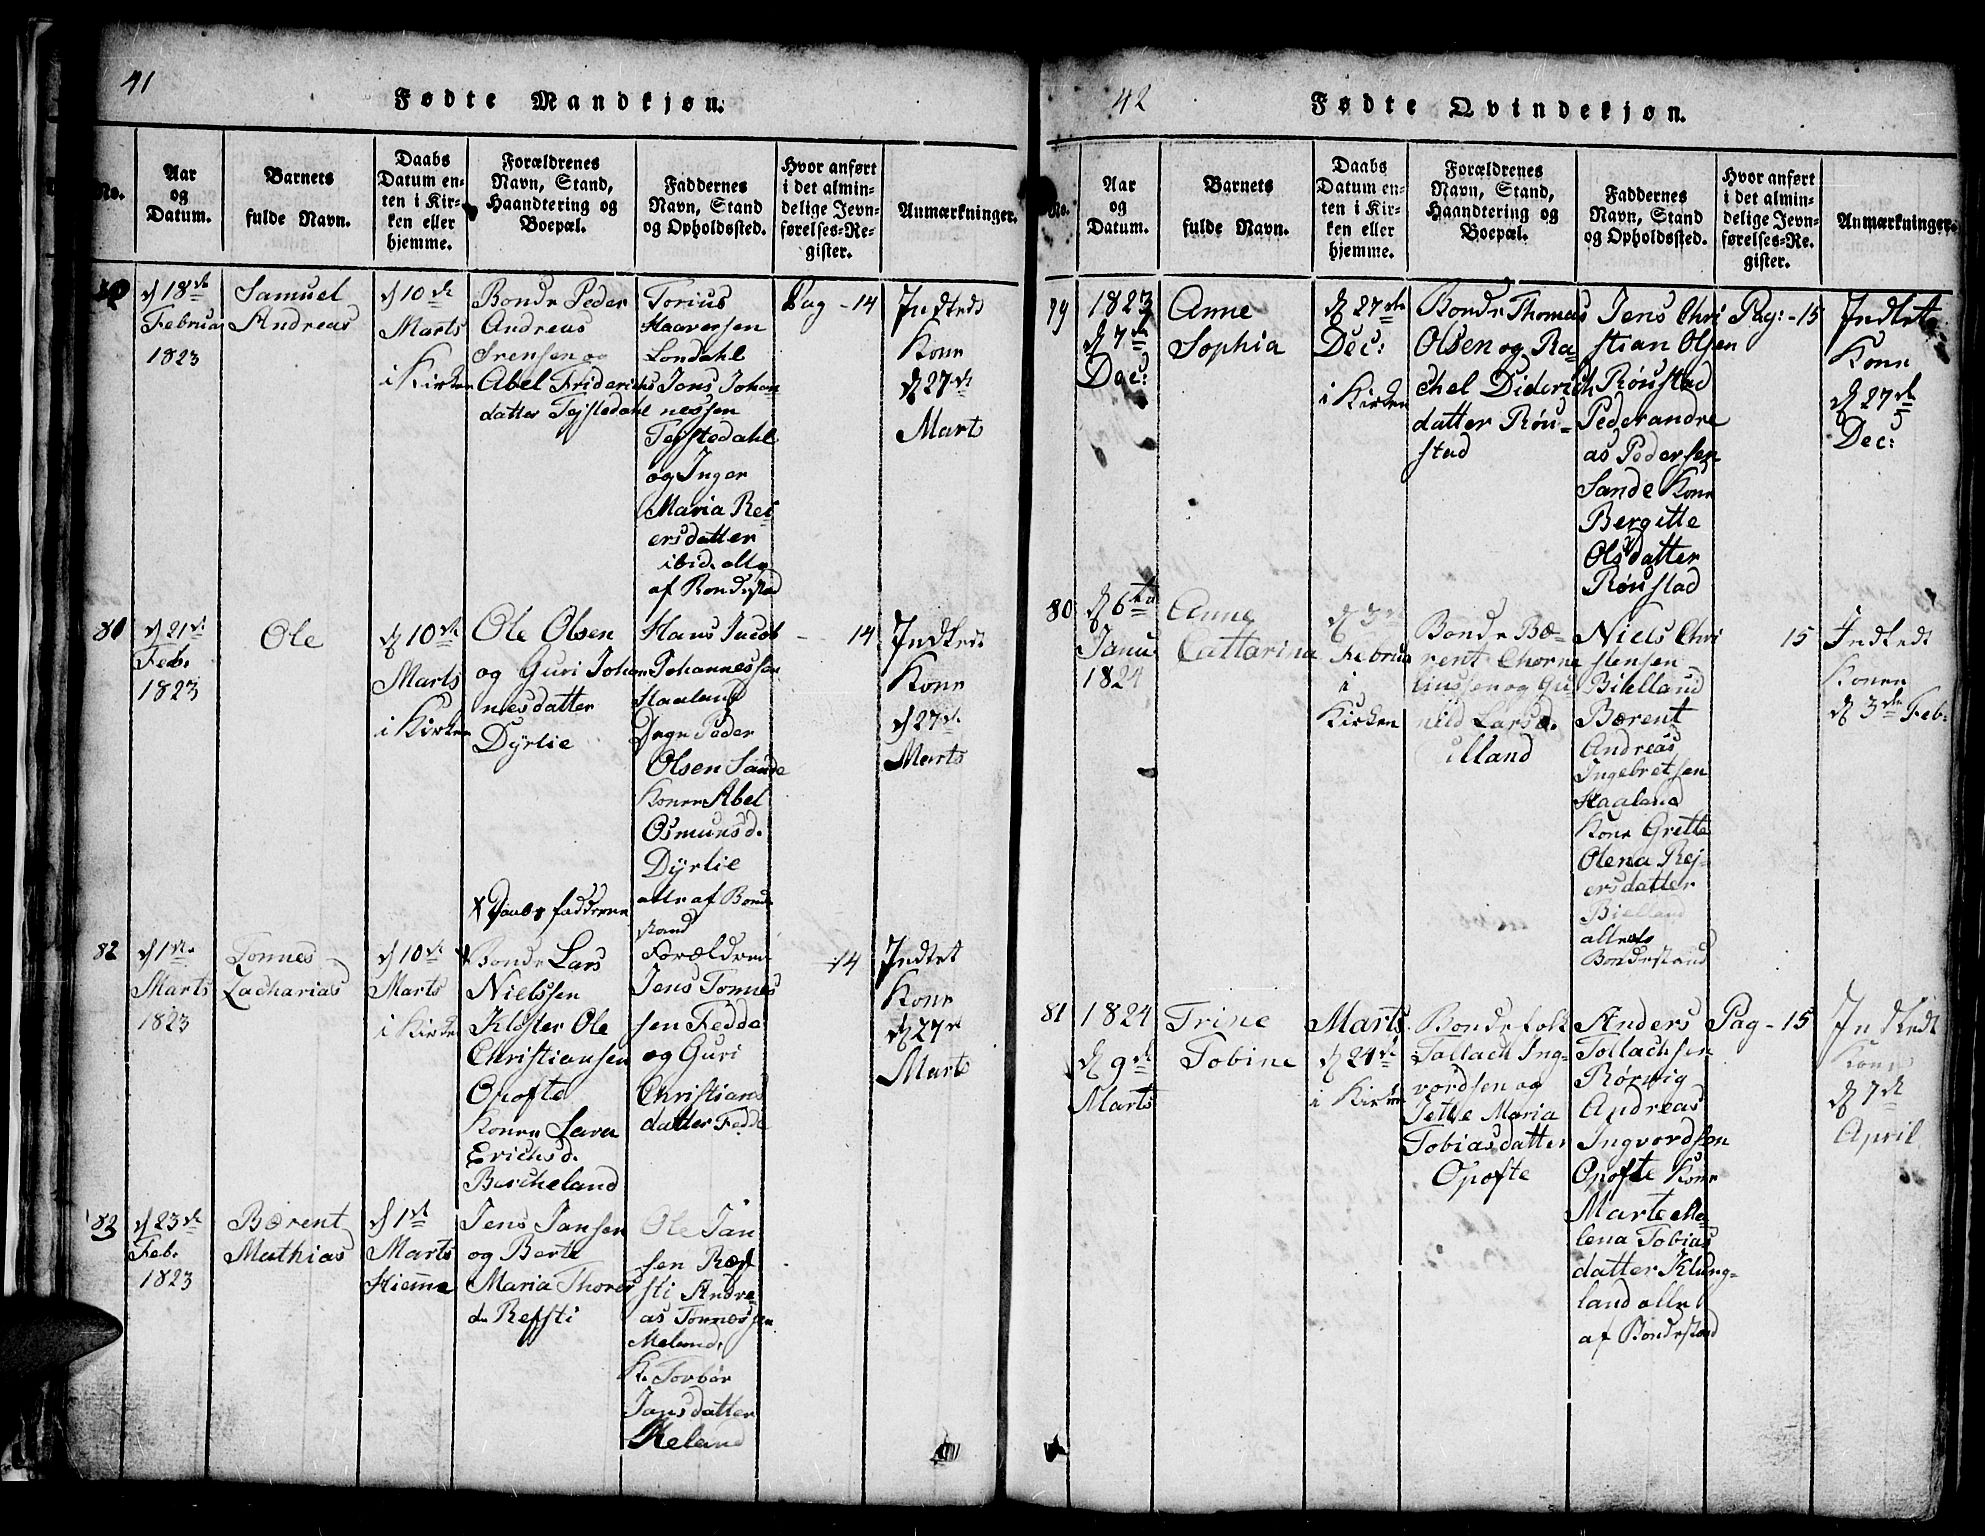 41
Fødte Mandkjøn.
No.
Aar
og
Datum.
Barnets
fulde Navn.
Daabs
Datum en-
ten i Kir-
ken eller
hjemme.
Forældrenes
Navn, Stand,
Haandtering og
Boepæl.
Faddernes
Navn, Stand
og Opholdssted.
Hvor anført
i det almin-
delige Jevn-
førelses-Re-
gister.
Anmærkninger.
80
d 18de
Februar
1823
Samuel
Andreas
d 10de
Marts
i Kirken
Bonde Peder
Andreas
Srensen og
Abel Friderichs
datter Tejstedahl
Torius
Haaversen
Londahl
Jens Johan
nessen
Tejstedahl
og Inger
Maria Rei
ersdatter
ibid. alle
af Bondestad
Pag - 14
Indtedt
Kone
d 27de
Mart
81
d 21de
Feb.
1823
Ole
d 10de
Marts
i Kirken
Ole Olsen
og Guri Johan
nesdatter
Dÿrlie
Hans Jacob
Johannessen
Haaland
Peder
Olsen Sande
Konen Abel
Osmunsd.
Dÿrlie
alle af Bonde
stand
- 14
Indtedt
Kone
d 27de
Marts
82
d 1de
Marts
1823
Tonnes
Zacharias
d 10de
Marts
i Kirken
x Daabs fadderne
x Bonde Lars
Nielssen
Kloster Ole
Christiansen
Opofte
Konen Sara
Erichsd.
Bircheland
Forældrene
Jens Tonnes
sen Fedde
og Guri
Christians
datter Fedde
14
Indtet
Kone
d 27de
Mart
83
d 23de
Feb.
1823
Bærent
Mathias
d 1de
Marts
Hiemme
Jens Jansen
og Berte
Maria Thores
d. Refsti
Ole Jan
sen Ræf
sti Andre
as Tonnessen
Meland.
K. Torbør
Jansdatter
Heland
42
Fødte Qvindekjøn.
No.
Aar
og
Datum.
Barnets
fulde Navn.
Daabs
Datum en-
ten i Kir-
ken eller
hjemme.
Forældrenes
Navn, Stand,
Haandtering og
Boepæl.
Faddernes
Navn, Stand
og Opholdssted.
Hvor anført
i det almin-
delige Jevn-
førelses-Re-
gister.
Anmærkninger.
79
1823
d 7de
Dec:
Anne
Sophia
d 27de
Dec:
i Kirken
Bonde Thomas
Olsen og Ra-
chel Diderich
datter Røu-
stad
Jens Chri
stian Olsen
Røustad
Pederandre
as Pedersen
Sande Kone
Bergitte
Olsdatter
Røustad
Pag: - 15
Indtet
Kone
d 27de
Dec:
80
d 6te
Janu
1824
Anne
Cattarina
d 3de
Februa
i
Kirken
Bonde Bæ-
rent Chorne
liussen og Gu-
nild Larsd.
illand
Niels Chri
stensen
Bielland
Bærent
Andreas
Ingebretsen
Haaland
Kone Grette
Olena Rej-
ersdatter
Bielland
alle af
Bondestand
15
Indtedt
Konen
d 3de Feb:
81
1824
d 9de
Marts
Trine
Tobine
Marts
d 24de
i Kirken
Bondefolk
Tallach Ing-
vordsen og
Jette Maria
Tobiasdatter
Opofte
Anders
Tollachsen
Rørvig
Andreas
Ingvordsen
Opofte Kone
Marte Ma-
lena Tobias
datter Klung-
land alle
af Bondestand
Pag - 15
Indtedt
Kone
d 7de
April